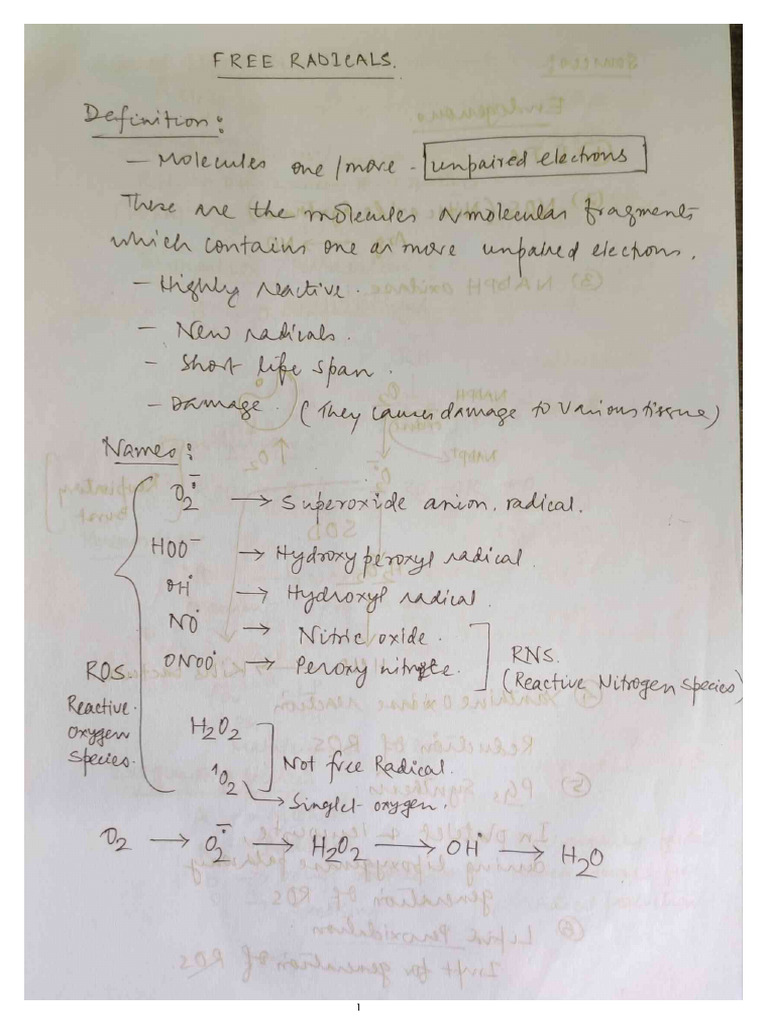 FREE RADICALS.
Definition:
— Molecules one/more - unpaired electrons
These are the molecules or molecular fragments
which contains one or more unpaired electrons.
— Highly reactive.
— New radicals.
— Short life span.
— Damage. (They causes damage to various tissue)
Names:
O2∸ → Superoxide anion, radical.
HOO⁻ → Hydroxy peroxyl radical.
OH• → Hydroxyl radical.
NO• → Nitric oxide.
ONOO• → Peroxy nitryte.
RNS.
(Reactive Nitrogen Species)
ROS.
Reactive.
Oxygen
Species.
H2O2
¹O2
Not free Radical.
→ Singlet oxygen.
O2 → O2∸ → H2O2 → OH• → H2O
1